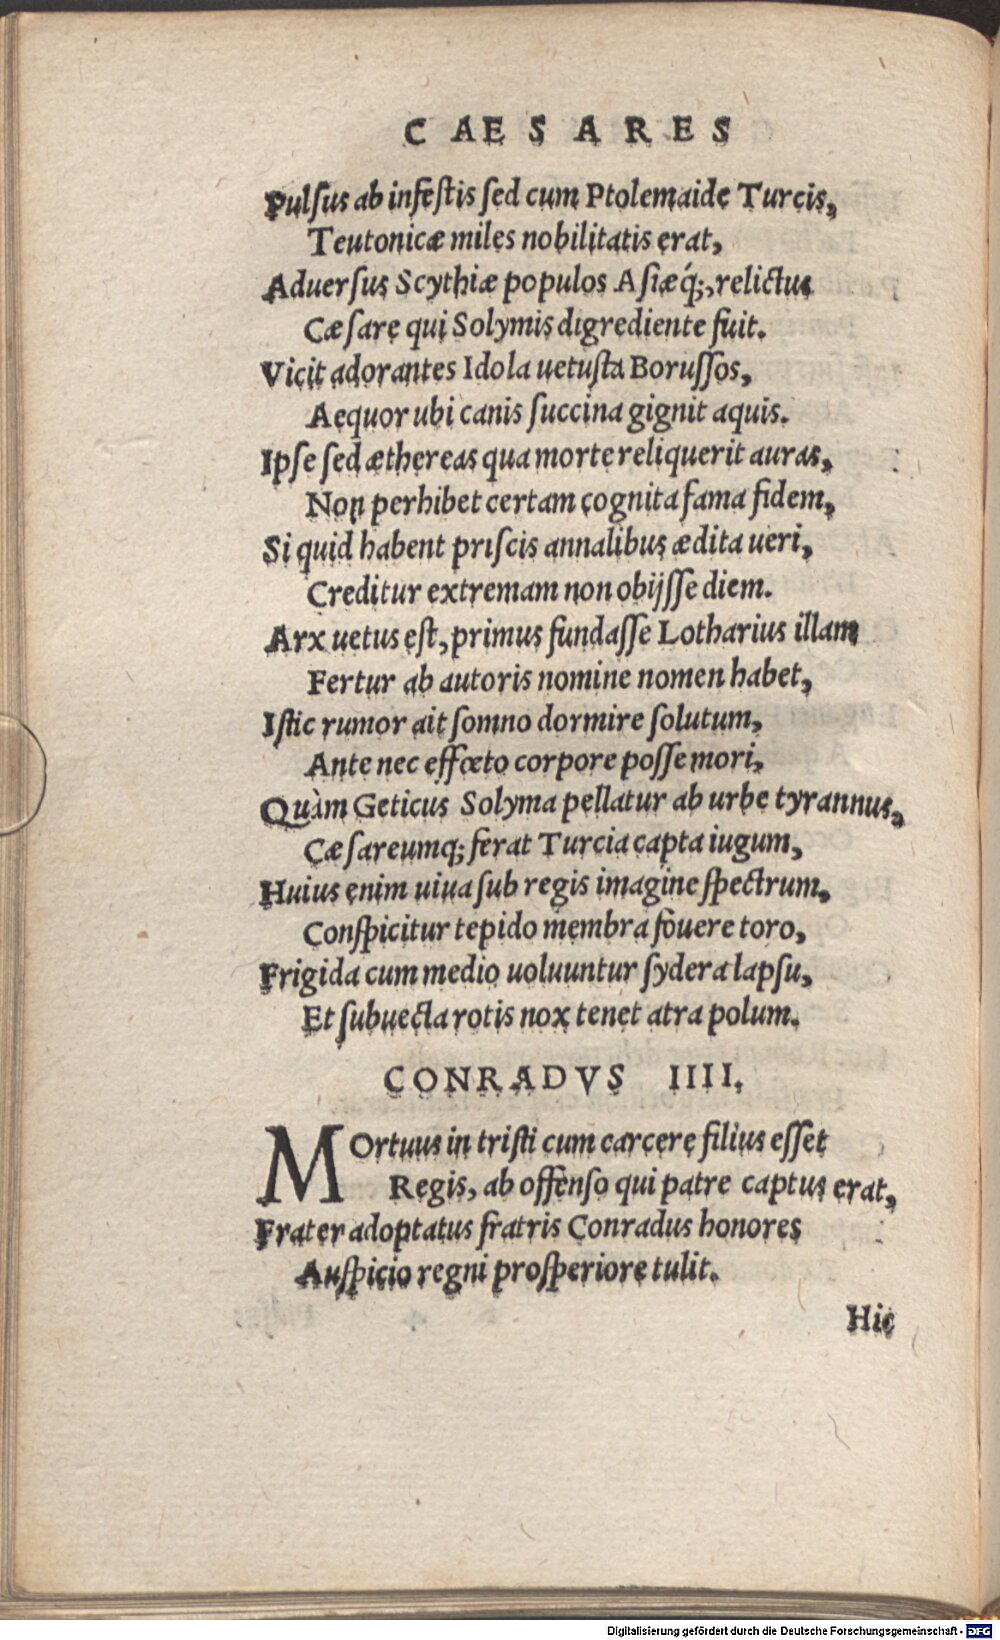 CAESARES
Pulſus ab infeſtis ſed cum Ptolemaide Turcis,
Teutonicæ miles nobilitatis erat,
Aduerſus Scythiæ populos Aſiæq́;, relictus
Cæſare qui Solymis digrediente fuit.
Vicit adorantes Idola uetuſta Boruſſos,
Aequor ubi canis ſuccina gignit aquis.
Ipſe ſed æthereas qua morte reliquerit auras,
Non perhibet certam cognita fama fidem,
Si quid habent priſcis annalibus ædita ueri,
Creditur extremam non obijſſe diem.
Arx uetus eſt, primus fundaſſe Lotharius illam
Fertur ab autoris nomine nomen habet,
Iſtic rumor ait ſomno dormire ſolutum,
Ante nec effœto corpore poſſe mori,
Quàm Geticus Solyma pellatur ab urbe tyrannus,
Cæſareumq; ferat Turcia capta iugum,
Huius enim uiua ſub regis imagine ſpectrum,
Conſpicitur tepido membra fouere toro,
Frigida cum medio uoluuntur ſydera lapſu,
Et ſubuecta rotis nox tenet atra polum.
CONRADVS IIII.
MOrtuus in triſti cum carcere filius eſſet
Regis, ab offenſo qui patre captus erat,
Frater adoptatus fratris Conradus honores
Auſpicio regni proſperiore tulit.
Hic
Digitalisierung gefördert durch die Deutsche Forschungsgemeinschaft - DFG